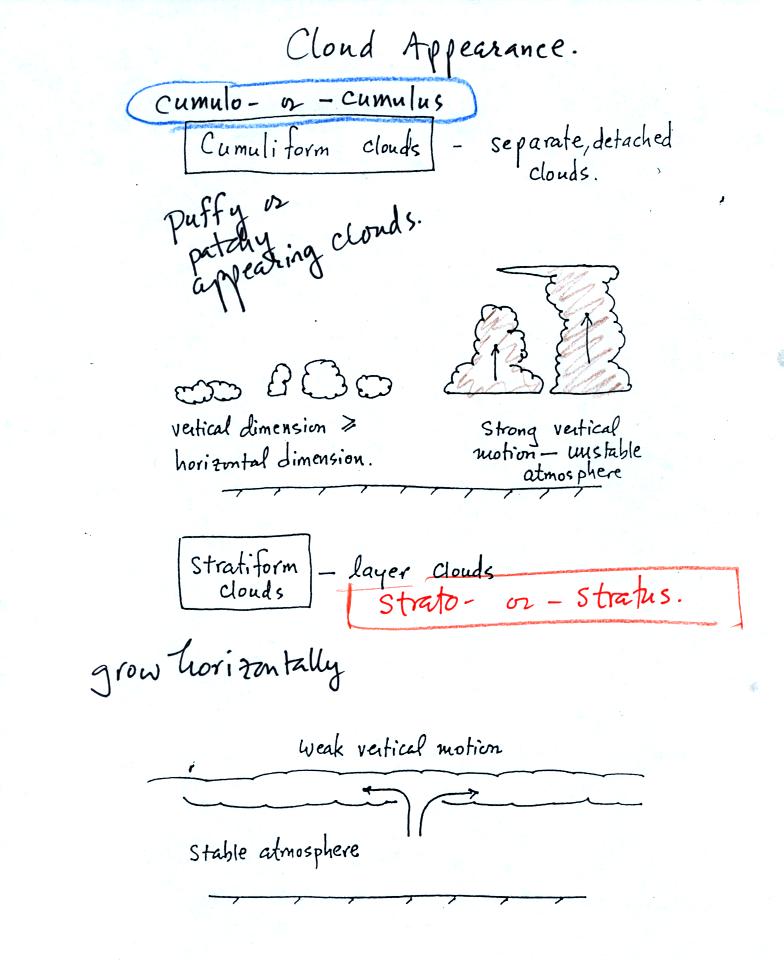 Cloud Appearance.
Cumulo- or -cumulus
Cumuliform clouds - separate, detached
clouds.
Puffy or
patchy
appearing clouds.
vertical dimension ≥
horizontal dimension.
Strong vertical
motion - unstable
atmosphere
Stratiform
clouds
- layer clouds
Strato- or -stratus.
grow horizontally
Weak vertical motion
Stable atmosphere